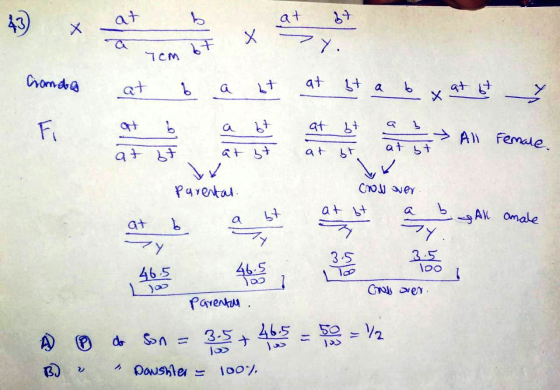 43) × a+ b a+ b+
a 7cm b+ × Y.
Gametes a+ b a b+ a+ b+ a b × a+ b+ Y
F1 a+ b a b+ a+ b+ a b → All Female.
a+ b+ a+ b+ a+ b+ a+ b+
Parental. Cross over.
a+ b a b+ a+ b+ a b → All male
Y Y Y Y.
46.5/100 46.5/100 3.5/100 3.5/100
Parental. Cross over.
A) P do Son = 3.5/100 + 46.5/100 = 50/100 = 1/2
B) " " Daughter = 100%